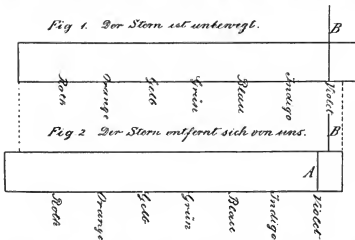 Fig 1. Der Stern ist unbewegt.
B
Roth Orange Gelb Grün Blau Indigo Violet
Fig 2 Der Stern entfernt sich von uns.
B
A
Roth Orange Gelb Grün Blau Indigo Violet